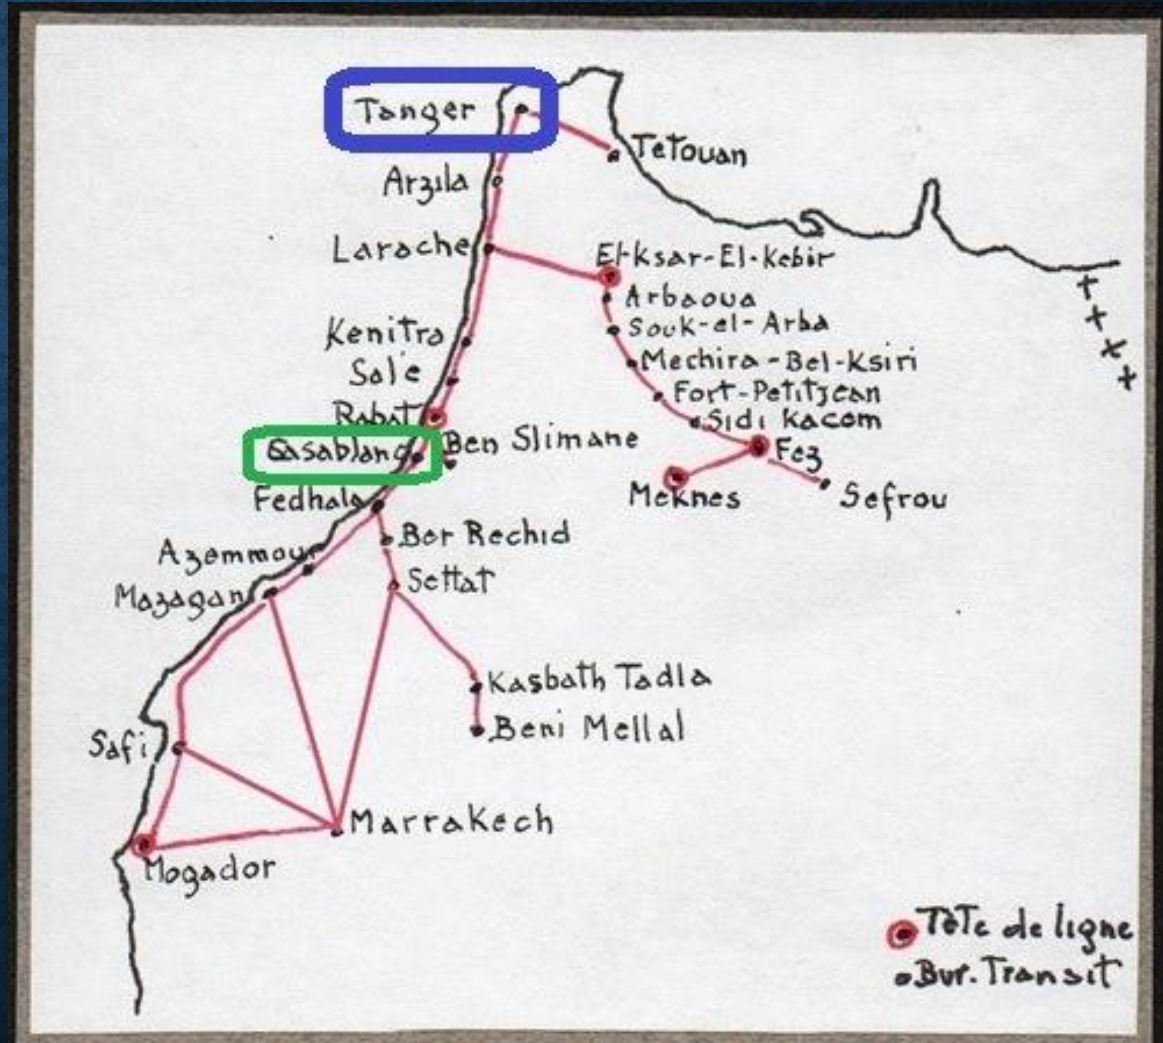 Tanger
Tetouan
Arzila
Larache
El-Ksar-El-Kebir
Arbaoua
Souk-el-Arba
Kenitra
Mechira-Bel-Ksiri
Sale
Fort-Petitjean
Rabat
Sidi Kacem
Casablanc
Ben Slimane
Fez
Meknes
Sefrou
Fedhala
Ber Rechid
Azemmour
Settat
Mazagan
Kasbath Tadla
Beni Mellal
Safi
Marrakech
Mogador
Tête de ligne
Bur. Transit